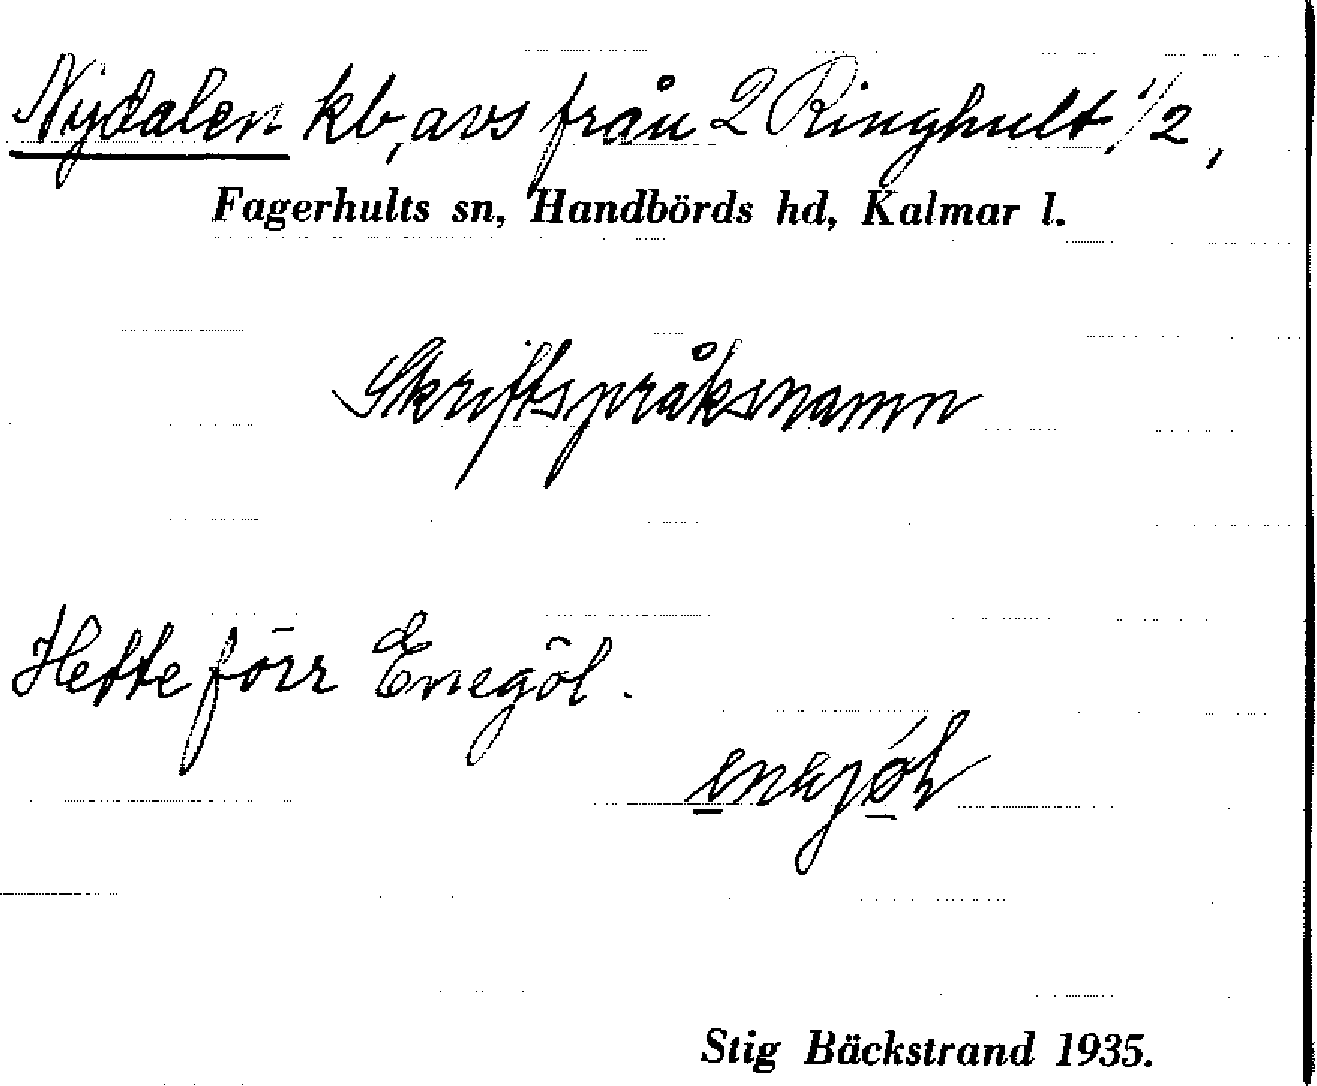 Nydalen kb, avs från 2 Ringhult 1/2,
Fagerhults sn, Handbörds hd, Kalmar l.
Skriftspråksnamn
Hette förr Enegöl.
Stig Bäckstrand 1935.